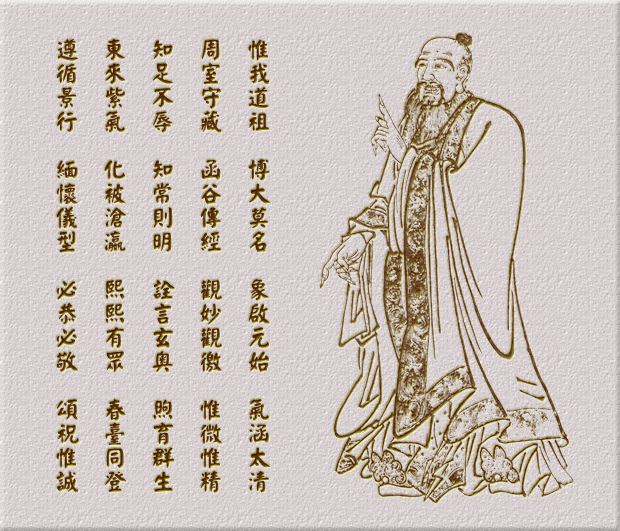 惟我道祖 博大莫名 象啟元始 氣涵太清
周室守藏 函谷傳經 觀妙觀徼 惟微惟精
知足不辱 知常則明 詮言玄奧 煦育群生
東來紫氣 化被滄瀛 熙熙有眾 春臺同登
遵循景行 緬懷儀型 必恭必敬 頌祝惟誠